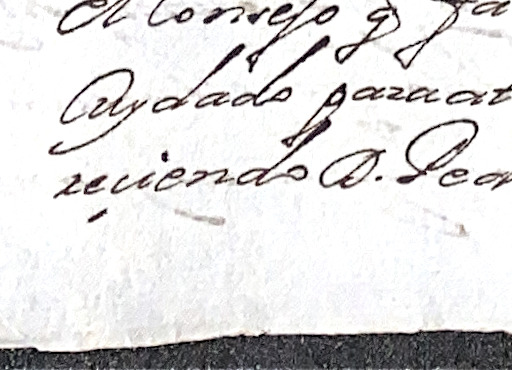 el Consejo q
Cuydado para at
reciendo D. Pedr